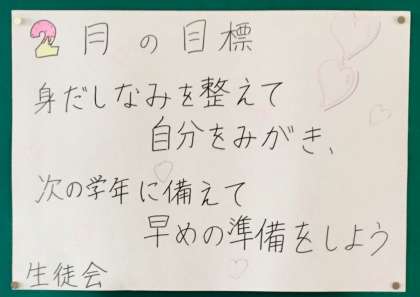 2月の目標
身だしなみを整えて
自分をみがき、
次の学年に備えて
早めの準備をしよう
生徒会